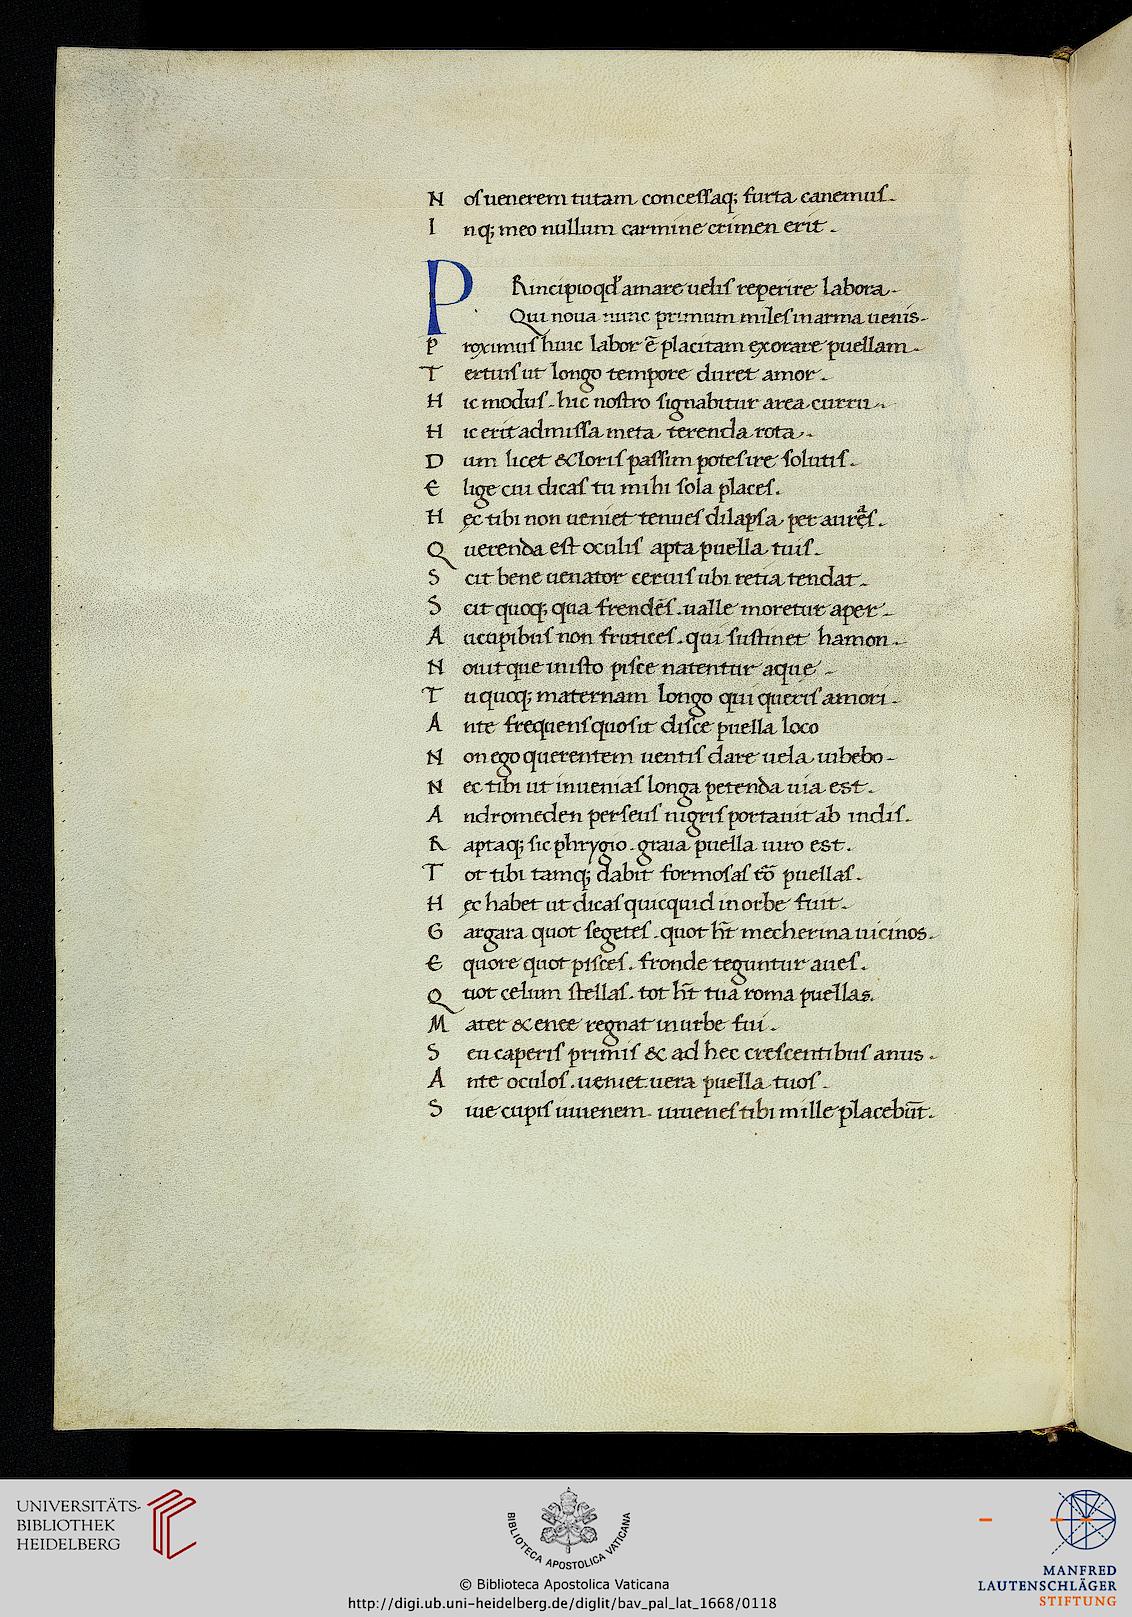 N osuenerem tutam concessaq; furta canemus.
I nq; meo nullum carmine crimen erit.
P Rincipio qđ amare uelis reperire labora.
Qui noua nunc primum miles inarma uenis.
P roximus huic labor ē placitam exorare puellam.
T ertius ut longo tempore duret amor.
H ic modus. hic nostro signabitur area curru.
H ic erit admissa meta terenda rota.
D um licet &loris passim potes ire solutis.
E lige cui dicas tu mihi sola places.
H ęc tibi non ueniet tenues dilapsa per auręs.
Q uerenda est oculis apta puella tuis.
S cit bene uenator ceruis ubi retia tendat.
S cit quoq; qua frendēs. ualle moretur aper.
A ucupibus non frutices. qui sustinet hamon.
N ouit que iuisto pisce natentur aque.
T u quoq; maternam longo qui queris amori.
A nte frequens quo sit disce puella loco
N on ego querentem uentis dare uela iubebo.
N ec tibi ut inuenias longa petenda uia est.
A ndromeden perseus nigris portauit ab indis.
R aptaq; sic phrygio. graia puella uiro est.
T ot tibi tamq; dabit formosas rō puellas.
H ęc habet ut dicas quicquid in orbe fuit.
G argara quot segetes. quot ħt mecherina uicinos.
E quore quot pisces. fronde teguntur aues.
Q uot celum stellas. tot ħt tua roma puellas.
M ater & enee regnat in urbe sui.
S eu caperis primis & ad hec crescentibus anus.
A nte oculos. ueniet uera puella tuos.
S iue cupis iuuenem. iuuenes tibi mille placebūt.
UNIVERSITÄTS-
BIBLIOTHEK
HEIDELBERG
BIBLIOTECA APOSTOLICA VATICANA
MANFRED
LAUTENSCHLÄGER
STIFTUNG
© Biblioteca Apostolica Vaticana
http://digi.ub.uni-heidelberg.de/diglit/bav_pal_lat_1668/0118